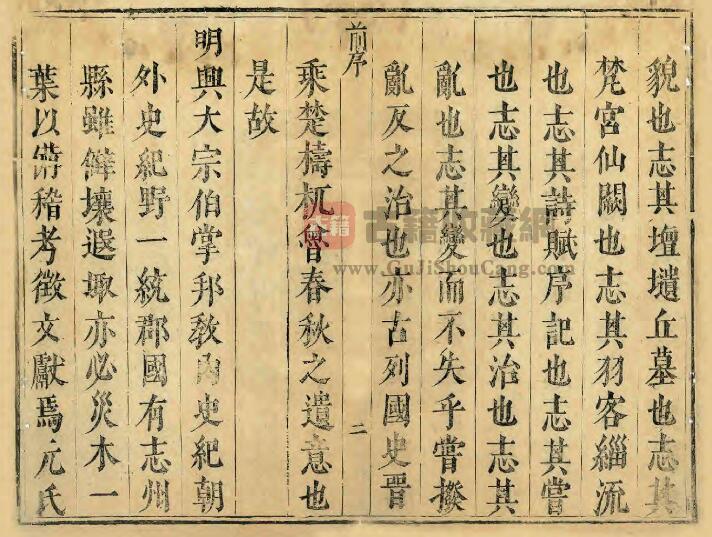 貌也志其壇壝丘墓也志其
梵宮仙闕也志其羽客緇流
也志其詩賦序記也志其嘗
也志其變也志其治也志其
亂也志其變而不失乎嘗撥
亂反之治也亦古列國史晉
前序
二
乘楚檮杌魯春秋之遺意也
是故
明興大宗伯掌邦教內史紀朝
外史紀野一統郡國有志州
縣雖僻壤遐陬亦必災木一
葉以備稽考徵文獻焉元氏
古籍
古籍收藏網
www.GuJiShouCang.com